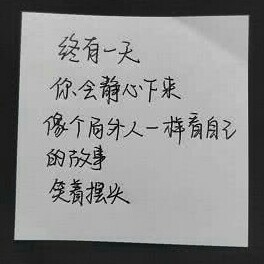 终有一天
你会静心下来
像个局外人一样看自己
的故事
笑着摆头